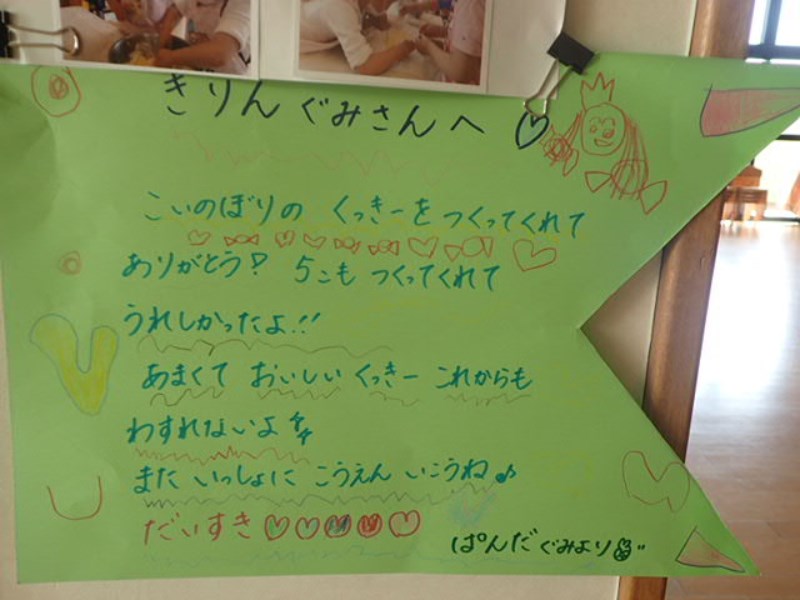 きりんぐみさんへ♡
こいのぼりの くっきーを つくってくれて
ありがとう? 5こも つくってくれて
うれしかったよ!!
あまくて おいしい くっきー これからも
わすれないよ
また いっしょに こうえん いこうね♪
だいすき♡♡♡♡♡
ぱんだぐみより